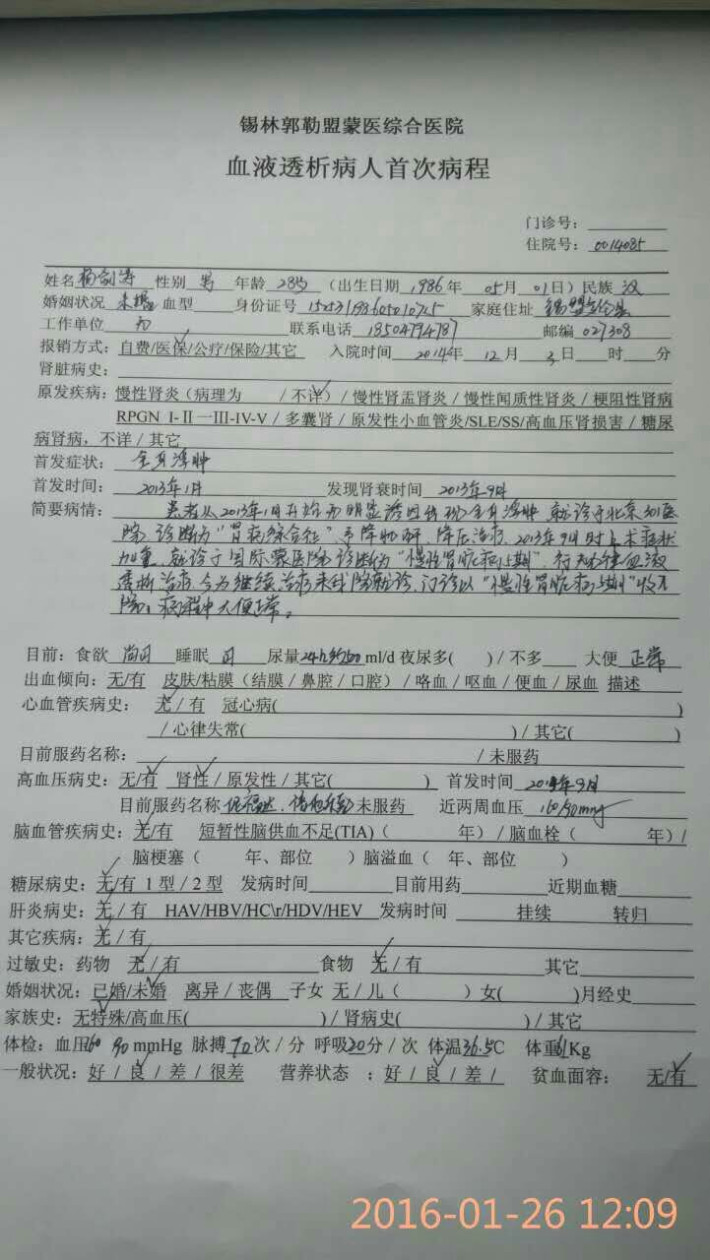 锡林郭勒盟蒙医综合医院
血液透析病人首次病程
门诊号：
住院号：0014085
姓名 性别 男 年龄 28岁 （出生日期 1986 年 05 月 01 日）民族 汉
婚姻状况 未婚 血型 身份证号 家庭住址
工作单位 为 联系电话 18504794787 邮编 027308
报销方式：自费/医保/公疗/保险/其它 入院时间 2014年 12 月 3 日 时 分
肾脏病史：
原发疾病：慢性肾炎（病理为 /不详）/慢性肾盂肾炎/慢性间质性肾炎/梗阻性肾病
RPGN I-II—III-IV-V/多囊肾/原发性小血管炎/SLE/SS/高血压肾损害/糖尿
病肾病，不详/其它
首发症状： 全身浮肿
首发时间： 2013年1月 发现肾衰时间 2013年9月
简要病情： 患者从2013年1月开始无明显诱因出现全身浮肿，就诊于北京301医
院，诊断为“肾病综合征”，予降 降压治疗，2013年9月 上术症状
加重，就诊于国际蒙医院诊断为“慢性肾脏病5期”，行规律血液
透析治疗，今为继续治疗来我院就诊，门诊以“慢性肾脏病5期”收入
院，病程中大便正常。
目前：食欲 尚可 睡眠 可 尿量 ml/d 夜尿多( )/不多 大便 正常
出血倾向：无/有 皮肤/粘膜（结膜/鼻腔/口腔）/咯血/呕血/便血/尿血 描述
心血管疾病史： 无/有 冠心病( )
/心律失常( )/其它( )
目前服药名称： /未服药
高血压病史：无/有 肾性/原发性/其它( ) 首发时间 年9月
目前服药名称 未服药 近两周血压 160/90mmg
脑血管疾病史：无/有 短暂性脑供血不足(TIA)（ 年）/脑血栓（ 年）/
脑梗塞（ 年、部位 ）脑溢血（ 年、部位 ）
糖尿病史：无/有 1型/2型 发病时间 目前用药 近期血糖
肝炎病史：无/有 HAV/HBV/HC\r/HDV/HEV 发病时间 挂续 转归
其它疾病：无/有
过敏史：药物 无/有 食物 无/有 其它
婚姻状况：已婚/未婚 离异/丧偶 子女 无/儿（ ）女( )月经史
家族史：无特殊/高血压( )/肾病史( )/其它
体检：血压160 90 mmHg 脉搏 70次/分 呼吸20分/次 体温36.5C 体重 Kg
一般状况：好/良/差/很差 营养状态 ：好/良/差/ 贫血面容： 无/有
2016-01-26 12:09